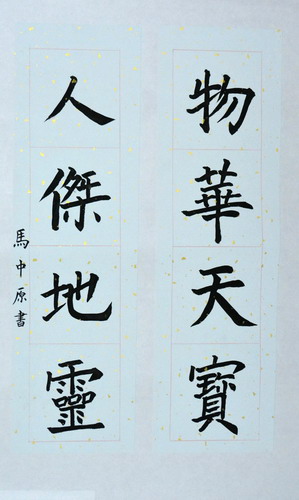 物華天寶
人傑地靈
馬中原書